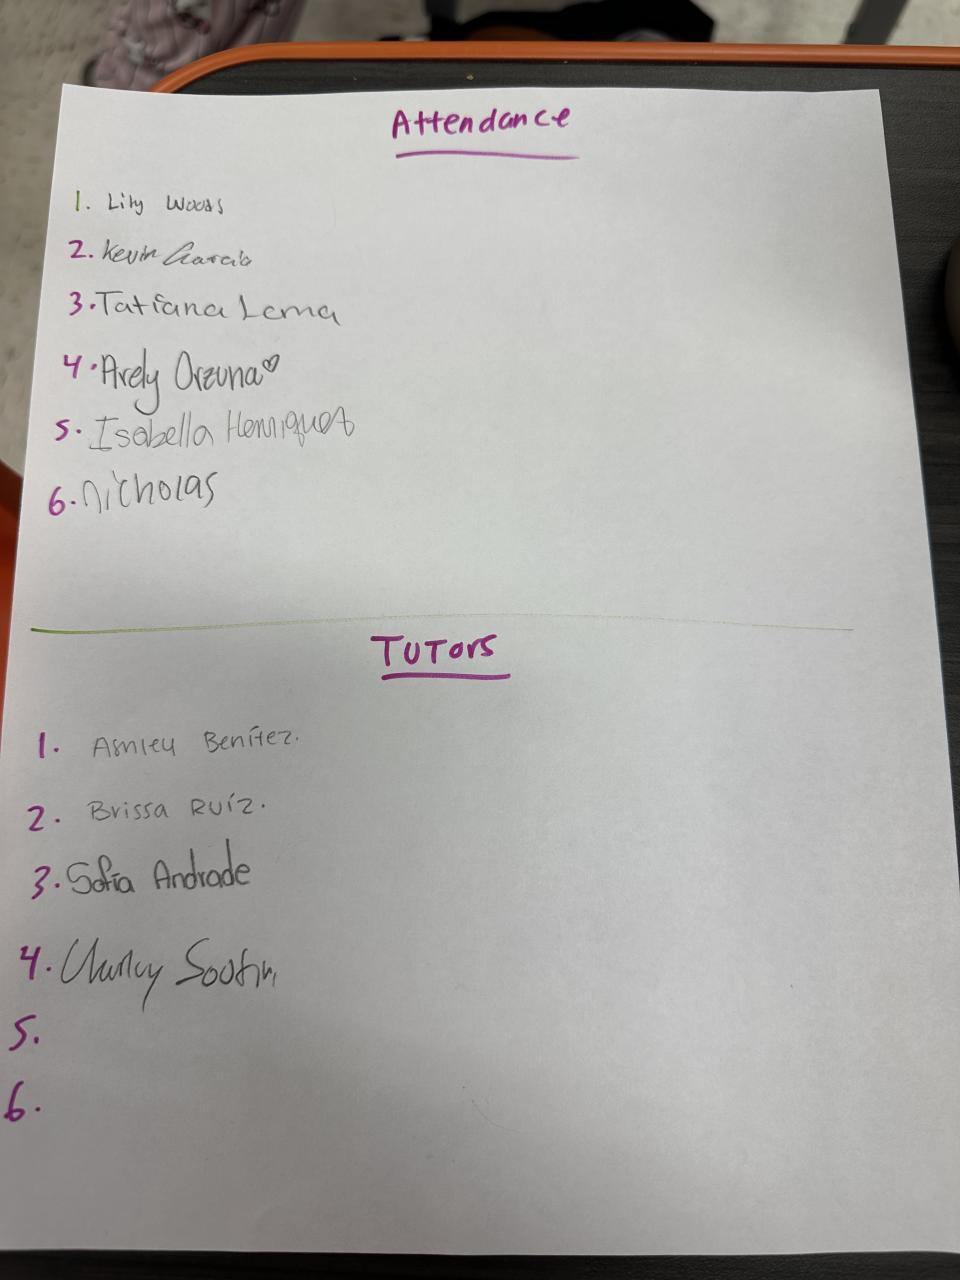 Attendance
1. Lily Woods
2. Kevin Garcia
3. Tatiana Lema
4. Arely Orzuna
5. Isabella Henriquez
6. Nicholas
Tutors
1. Ashley Benítez.
2. Brissa Ruíz.
3. Sofia Andrade
4.
5.
6.